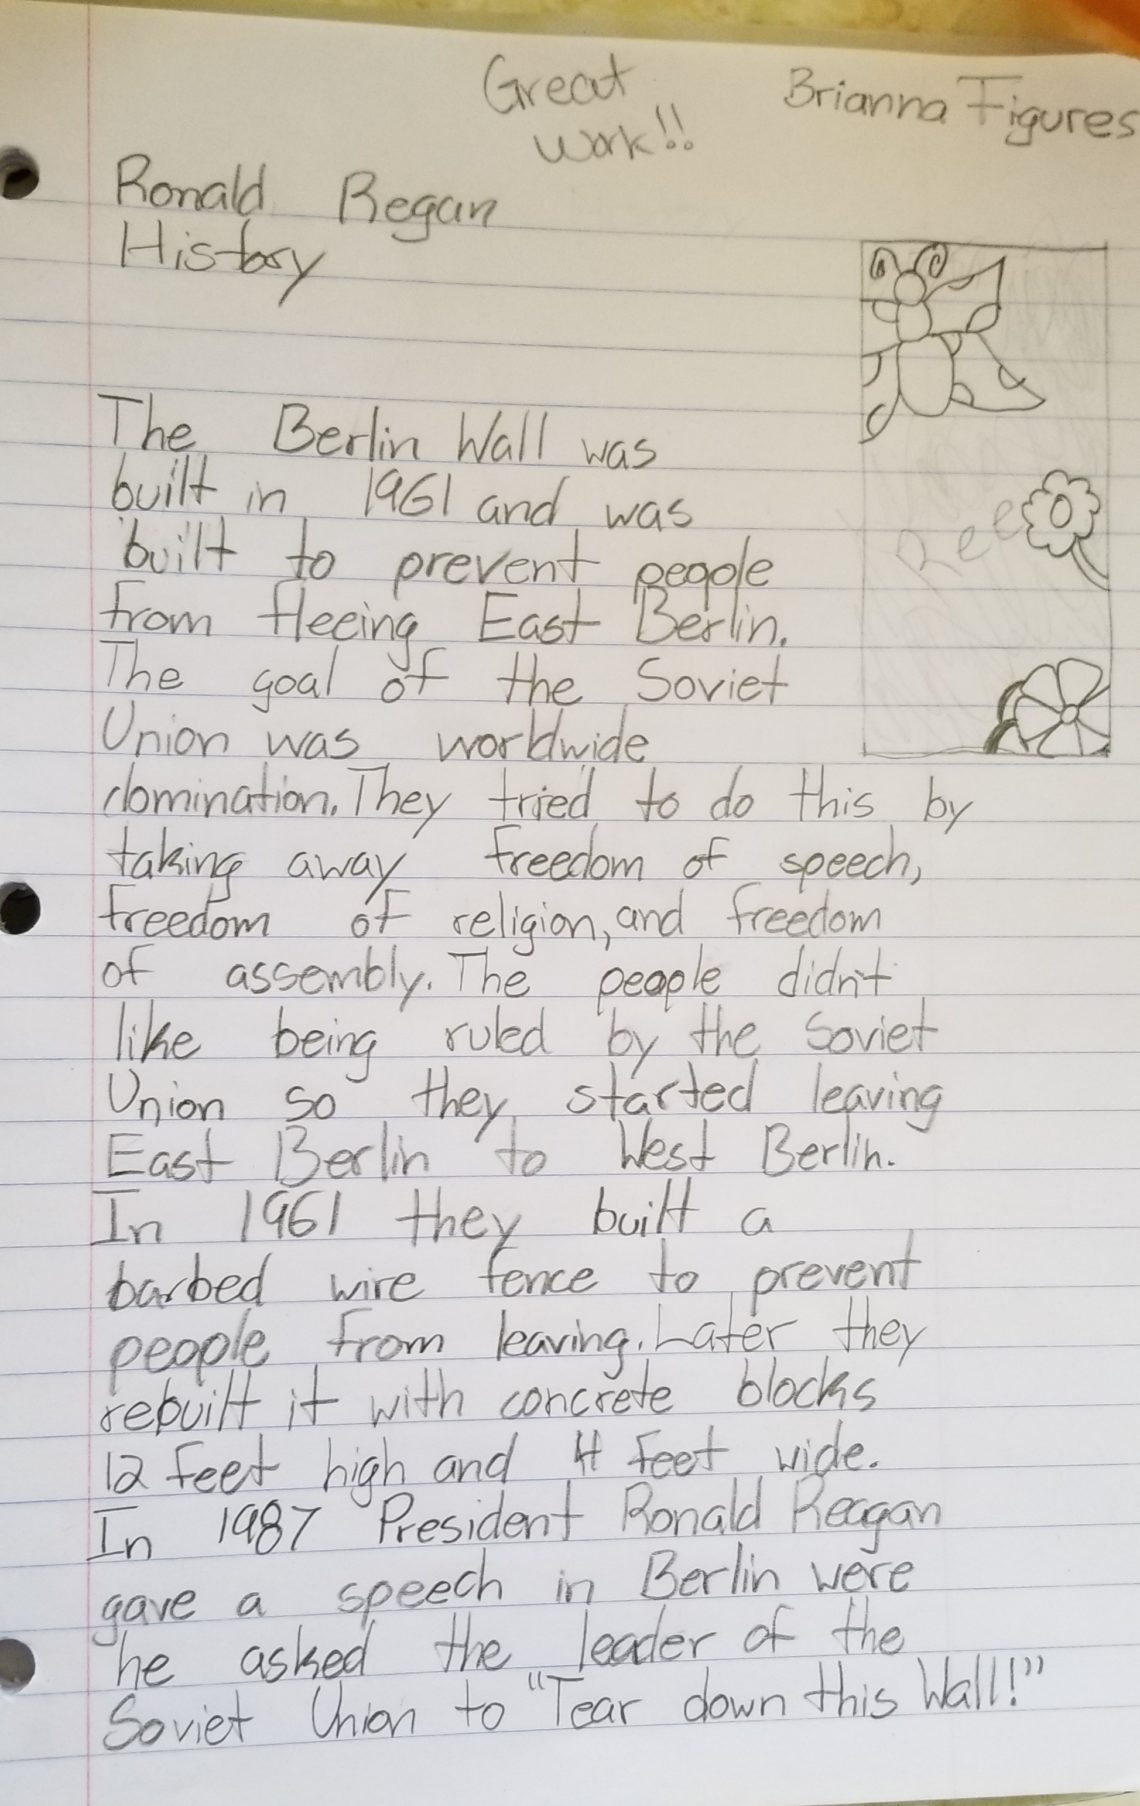 Great
Work!!
Brianna Figures
Ronald Regan
History
The Berlin Wall was
built in 1961 and was
built to prevent people
from fleeing East Berlin.
The goal of the Soviet
Union was worldwide
domination. They tried to do this by
taking away freedom of speech,
freedom of religion, and freedom
of assembly. The people didn't
like being ruled by the Soviet
Union so they started leaving
East Berlin to West Berlin.
In 1961 they built a
barbed wire fence to prevent
people from leaving. Later they
rebuilt it with concrete blocks
12 feet high and 4 feet wide.
In 1987 President Ronald Reagan
gave a speech in Berlin were
he asked the leader of the
Soviet Union to "Tear down this Wall!"